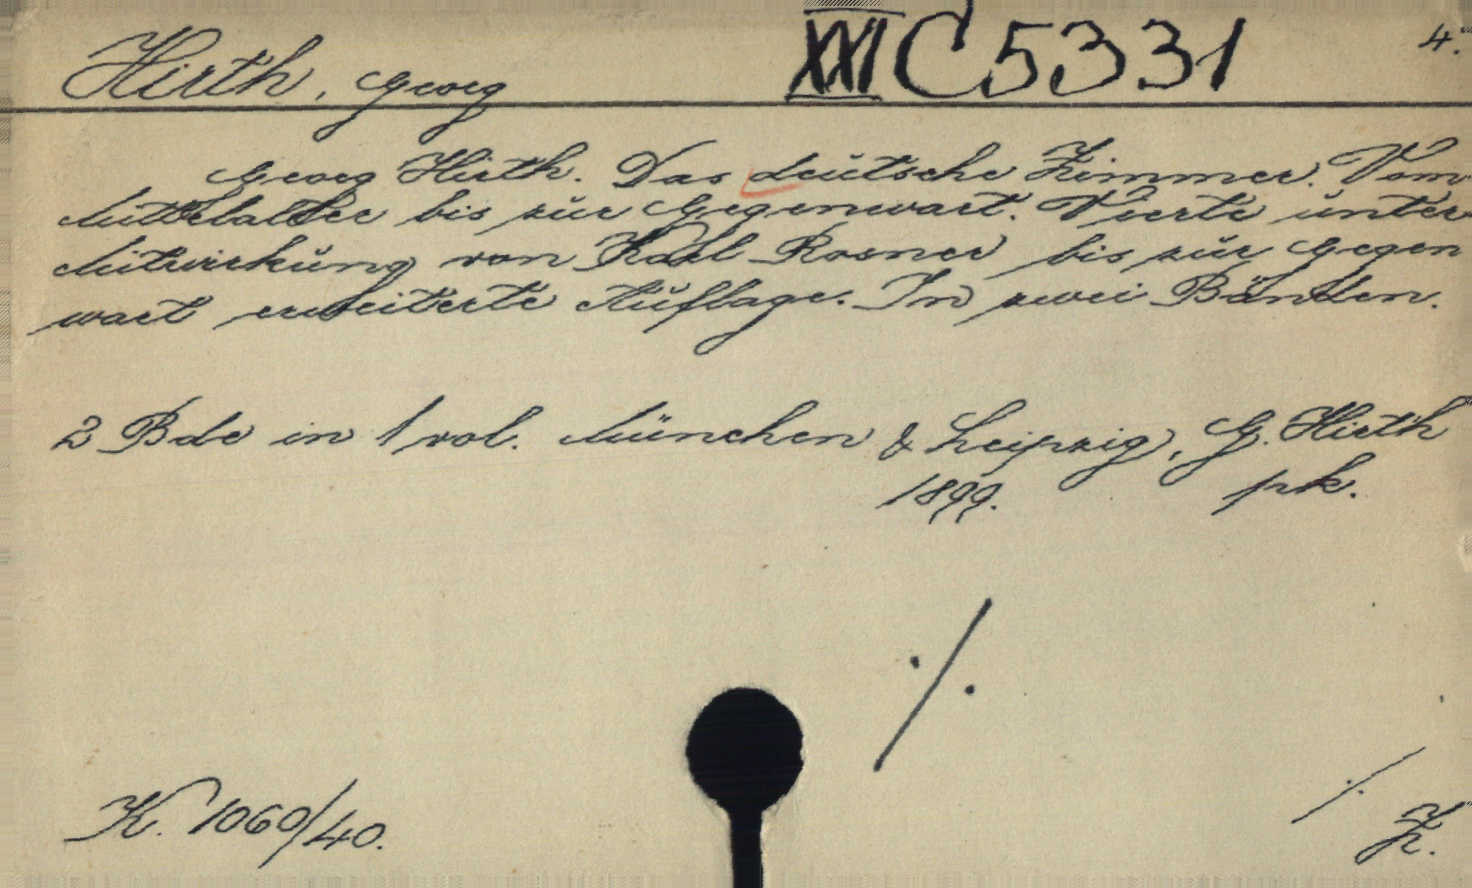 Hirth, Georg XXI C 5331 4.°
Georg Hirth. Das deutsche Zimmer. Vom
Mittelalter bis zur Gegenwart. Vierte unter
Mitwirkung von Karl Rosner bis zur Gegen
wart erweiterte Auflage. In zwei Bänden.
2 Bde in 1 vol. München & Leipzig, G. Hirth
1899. pk.
./.
K. 1060/40.
./.
Z.